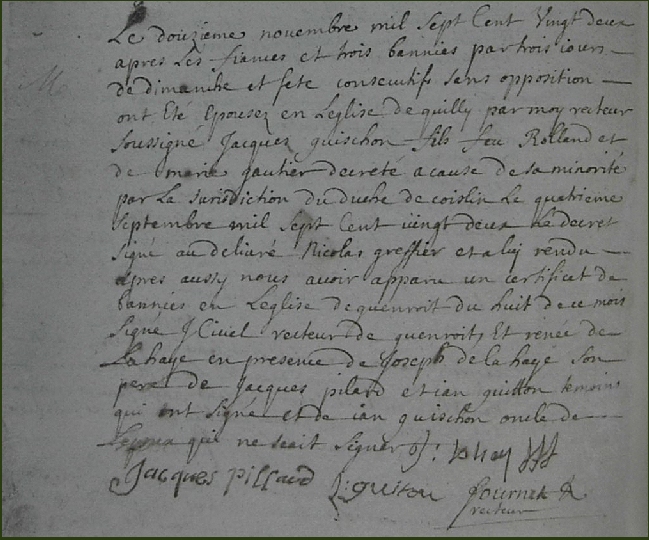 Le douzieme novembre mil sept Cent Vingt deux
apres Les fiances et trois bannies par trois iours
de dimanche et fete consecutifs sans opposition
ont Eté Epousez en Leglise de quilly par moy recteur
soussigné Jacques guischon fils feu Rolland et
de marie gautier decreté a cause de sa minorité
par La Jurisdiction du duché de coislin Le quatrieme
septembre mil sept Cent vingt deux le decret
signé au delivré Nicolas greffier et a luy rendu
apres aussy nous avoir apparu un certificat de
bannies en Leglise de guenroit du huit de ce mois
signé Civiel recteur de guenroit, Et renée de
La haye en presence de Joseph de la haye son
pere de Jacques pilard et ian guillon temoins
qui ont signé et de ian guischon oncle de
qui ne scait signer
Jacques pillard fournek
recteur